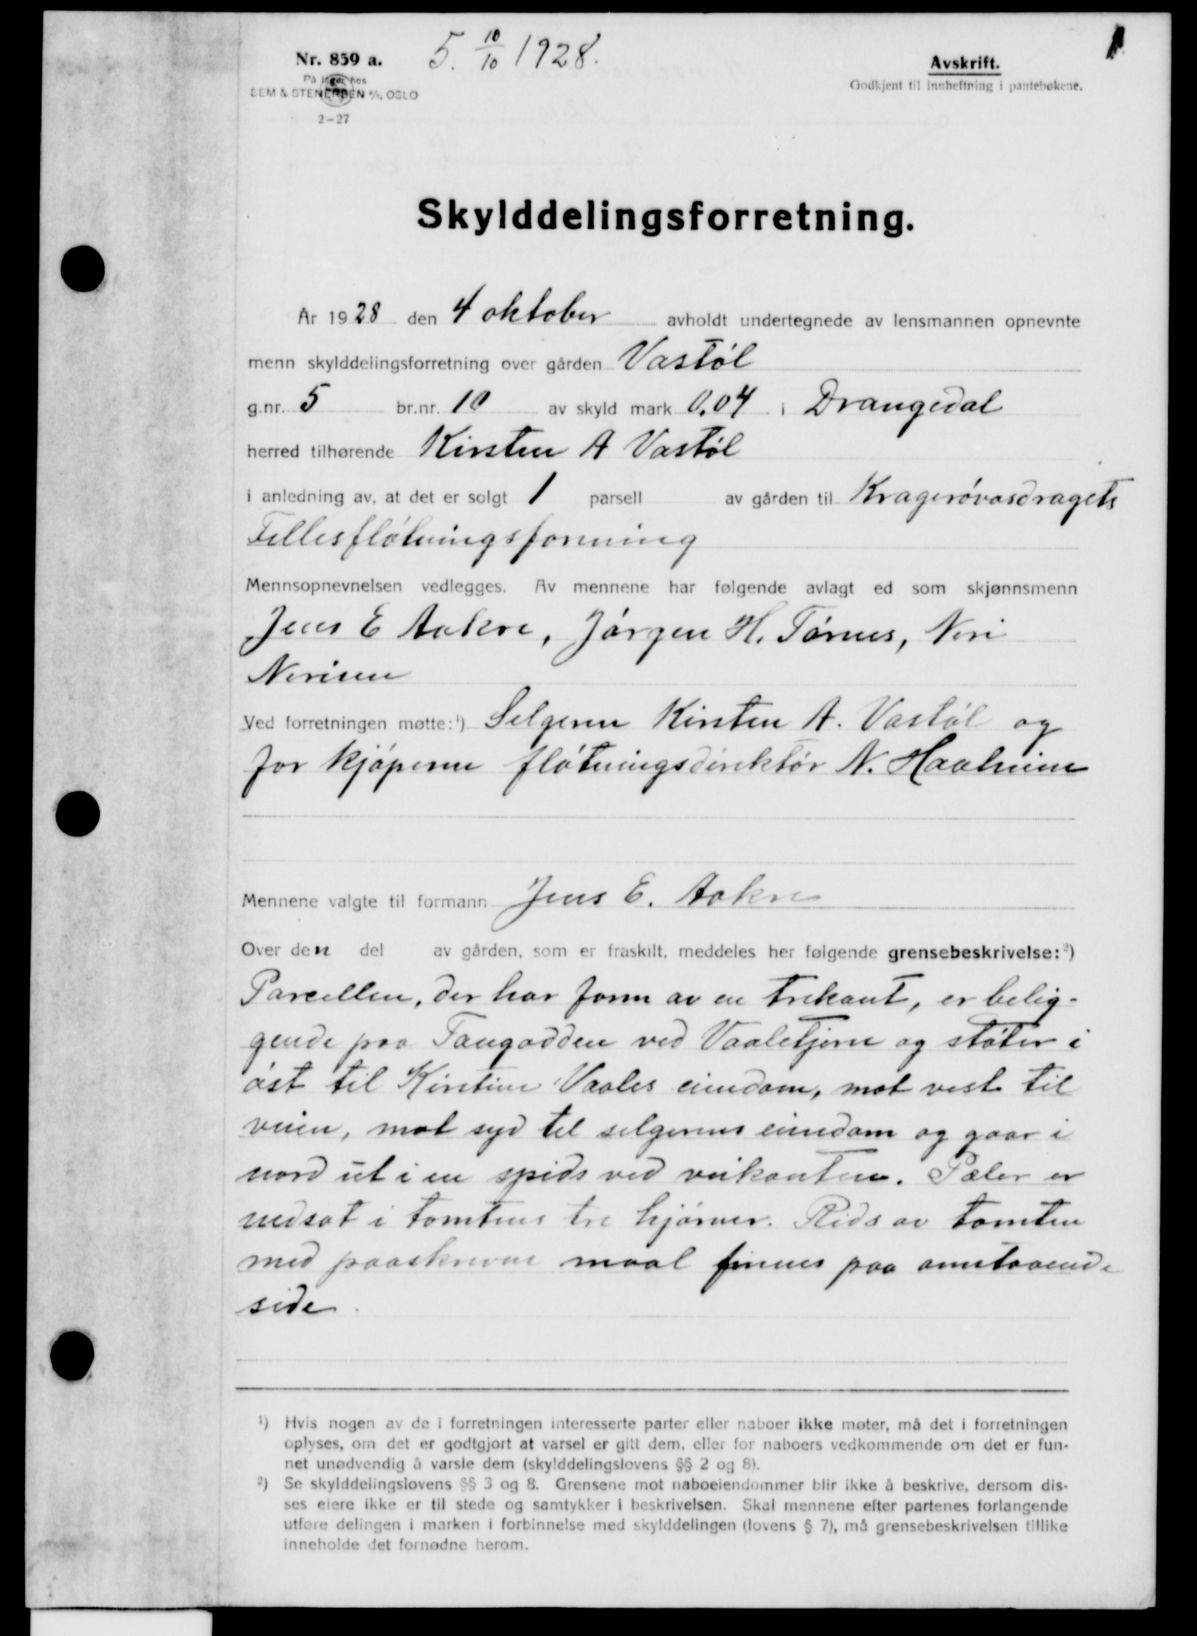 Nr. 859 a.
5. 10/10 1928.
Avskrift.
På lager hos
SEM & STENERSEN A/S, OSLO
Godkjent til innheftning i pantebøkene.
2-27
Skylddelingsforretning.
År 1928 den 4 oktober avholdt undertegnede av lensmannen opnevnte
menn skylddelingsforretning over gården Vastøl
g.nr. 5 br.nr. 10 av skyld mark 0,04 i Drangedal
herred tilhørende Kirsten A Vastøl
i anledning av, at det er solgt 1 parsell av gården til Kragerøvasdragets
Fellesfløtningsforening
Mennsopnevnelsen vedlegges. Av mennene har følgende avlagt ed som skjønnsmenn
Jens E Aakre, Jørgen H. Tørnes, Neri
Nerisen
Ved forretningen møtte:¹) Selgeren Kirsten A. Vastøl og
for kjøperen fløtningsdirektør N. Haaheim
Mennene valgte til formann Jens E. Aakre
Over den del av gården, som er fraskilt, meddeles her følgende grensebeskrivelse:²)
Parcellen, der har form av en trekant, er belig-
gende paa Tangodden ved Vaaletjern og støter i
øst til Kirstine Vaales eiendom, mot vest til
veien, mot syd til selgerens eiendom og gaar i
nord ut i en spids ved veikanten. Pæler er
nedsat i tomtens tre hjørner. Rids av tomten
med paaskrevne maal finnes paa omstaaende
side.
¹) Hvis nogen av de i forretningen interesserte parter eller naboer ikke møter, må det i forretningen
oplyses, om det er godtgjort at varsel er gitt dem, eller for naboers vedkommende om det er fun-
net unødvendig å varsle dem (skylddelingslovens §§ 2 og 8).
²) Se skylddelingslovens §§ 3 og 8. Grensene mot naboeiendommer blir ikke å beskrive, dersom dis-
ses eiere ikke er til stede og samtykker i beskrivelsen. Skal mennene efter partenes forlangende
utføre delingen i marken i forbinnelse med skylddelingen (lovens § 7), må grensebeskrivelsen tillike
inneholde det fornødne herom.